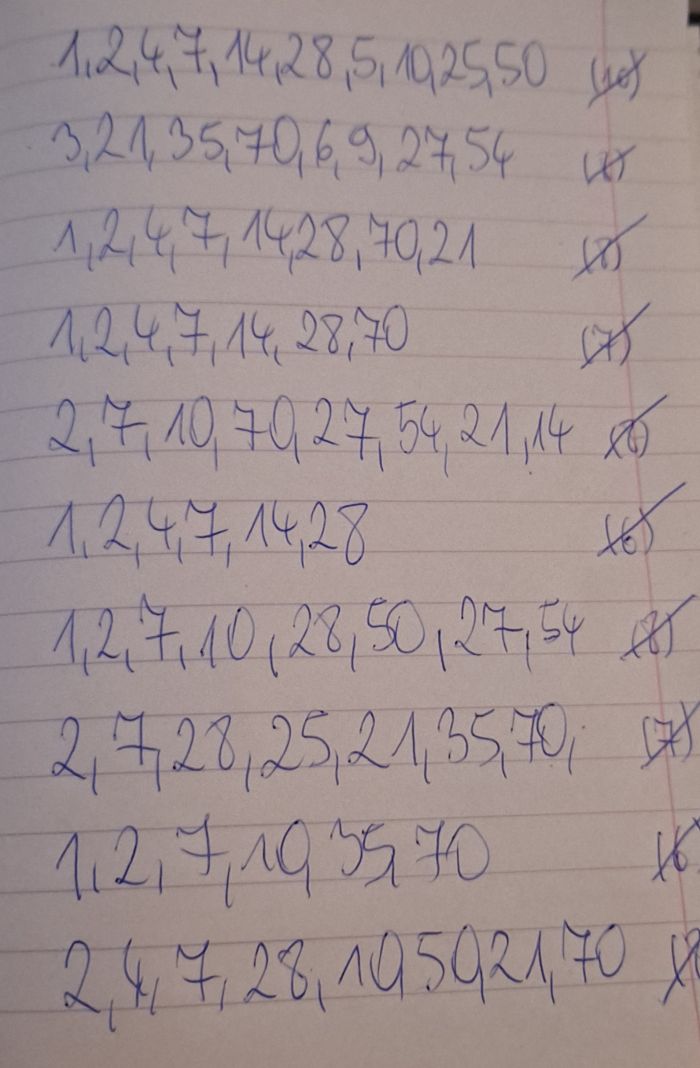 1,2,4,7,14,28,5,10,25,50 (10)
3,21,35,70,6,9,27,54 (8)
1,2,4,7,14,28,70,21 (8)
1,2,4,7,14,28,70 (7)
2,7,10,70,27,54,21,14 (8)
1,2,4,7,14,28 (6)
1,2,7,10,28,50,27,54 (8)
2,7,28,25,21,35,70, (7)
1,2,7,10,35,70 (6
2,4,7,28,10,50,21,70 (8